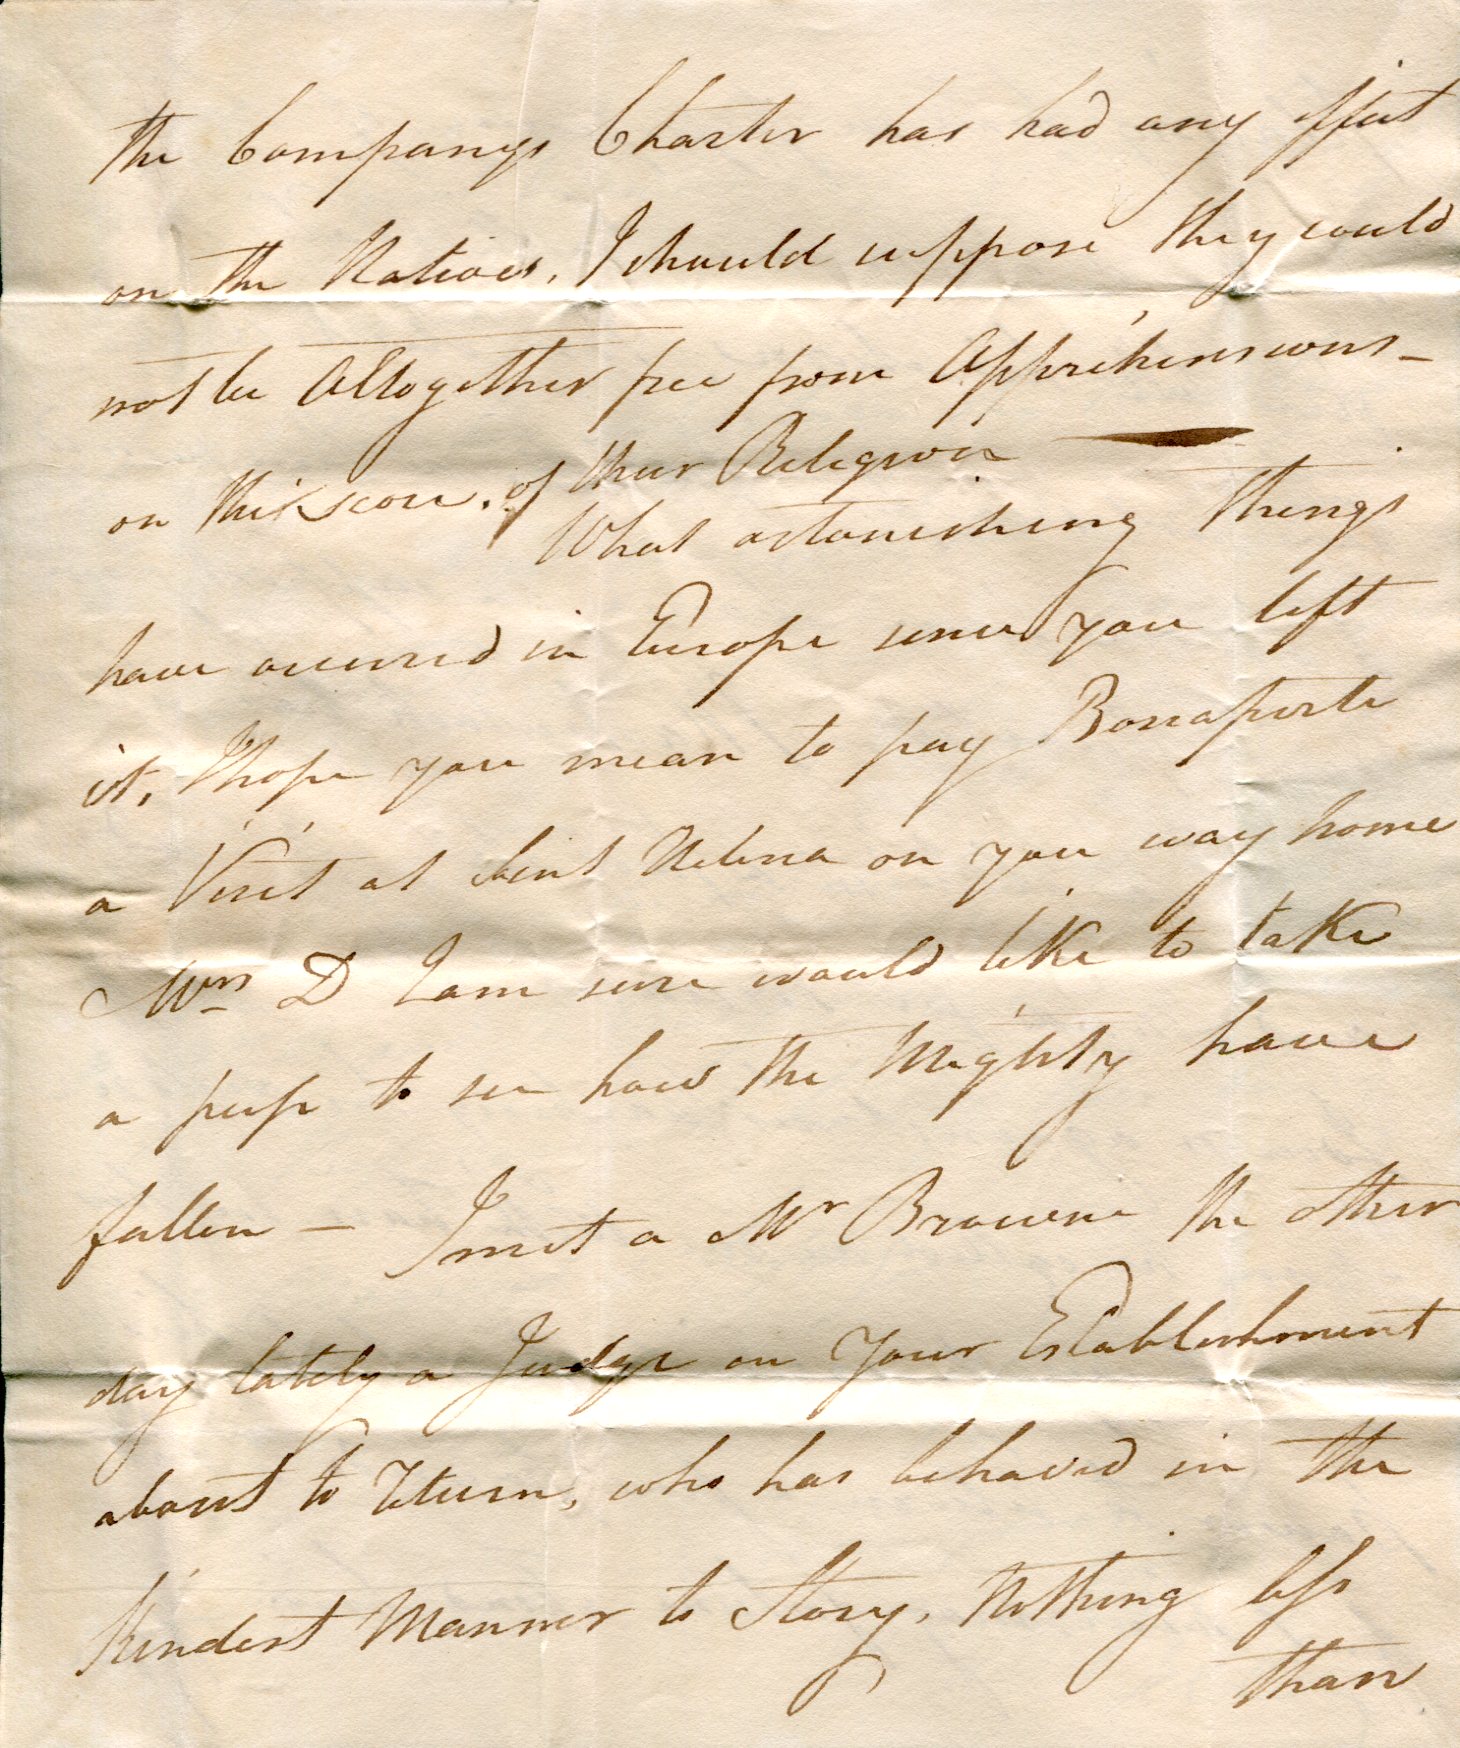 the Companys Charter has had any effect
on the Natives, I should suppose they would
not be Altogether free from Apprehensions –
on this score. of their Religion —
What astonishing things
have occured in Europe since you left
it, I hope you mean to pay Bonaparte
a Visit at Saint Helena on you way home
Mrs D I am sure would like to take
a peep to see how the Mighty have
fallen — I met a Mr Browne the other
day lately a Judge on Your Establishment
about to return, who has behaved in the
Kindest Manner to Story, Nothing less
than